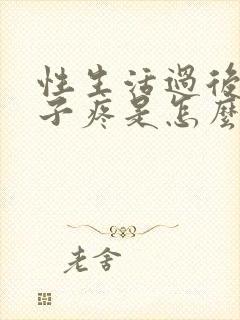 性生活過後
子疼是怎麼
老舍